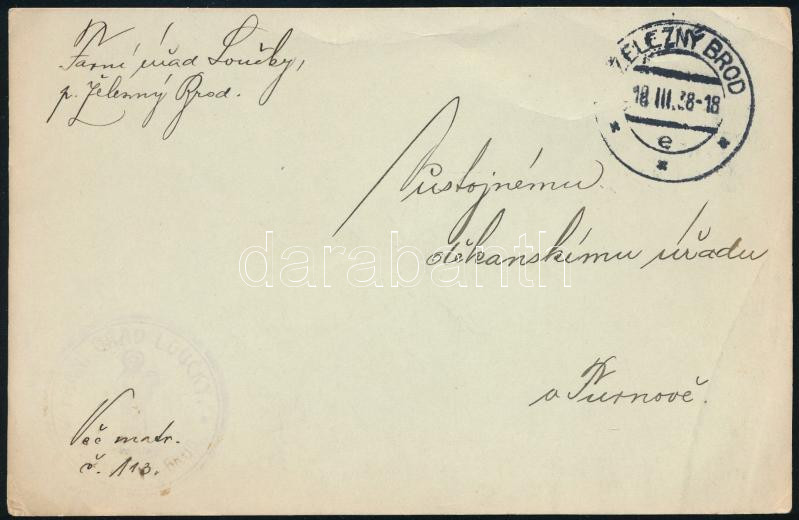 Farní úřad Loučky,
p. Železný Brod.
ŽELEZNÝ BROD
18 III.38-18
e
Důstojnému
děkanskému úřadu
v Turnově.
darabanth
ÚŘAD LOUČKY
Věc matr.
č. 113.